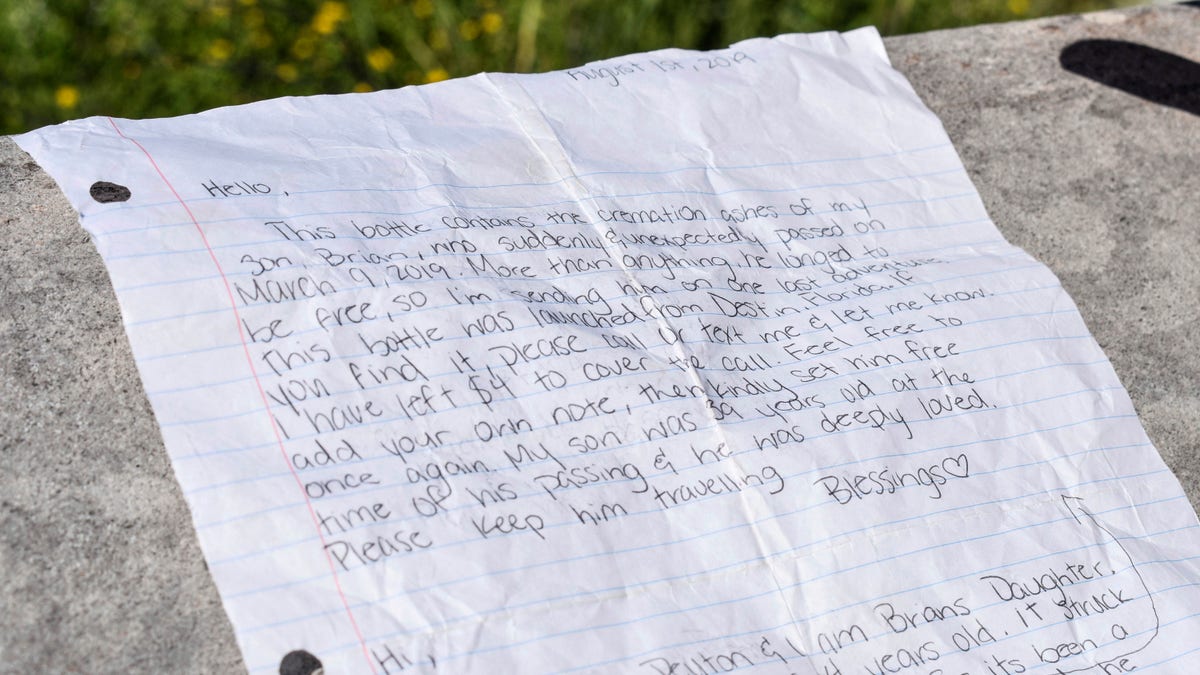 August 1st, 2019
Hello,
This bottle contains the cremation ashes of my
son Brian, who suddenly & unexpectedly passed on
March 9, 2019. More than anything he longed to
be free, so I'm sending him on one last adventure.
This bottle was launched from Destin, Florida. If
you find it, please call or text me & let me know.
I have left $4 to cover the call. Feel free to
add your own note, then kindly set him free
once again. My son was 39 years old at the
time of his passing & he was deeply loved.
Please keep him travelling
Blessings♡
Hi,
& I am Brians Daughter.
years old. it struck
its been a
he